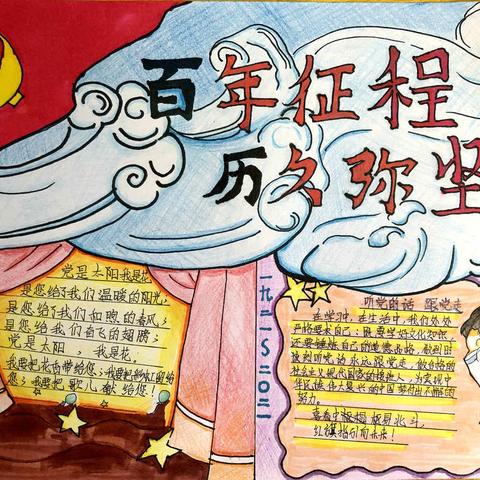 百年征程
历久弥坚
党是太阳我是花,
是您给了我们温暖的阳光,
是您给了我们和煦的春风;
是您给我们奋飞的翅膀;
党是太阳,我是花,
我要把花香带给您;我要把彩虹留给
您;我要把歌儿献给您!
一九二一~二〇二一
听党的话 跟党走
在学习中,在生活中,我们处处
严格要求自己:既要学好文化知识,
还要锤炼自己的道德品格,做到因
该到听党话永远跟党走,做合格的
社会主义现代国家的接班人,为实现中
华民族伟大复兴的中国梦付出不懈的
努力。
喜看中
易北斗
红旗指引向未来!